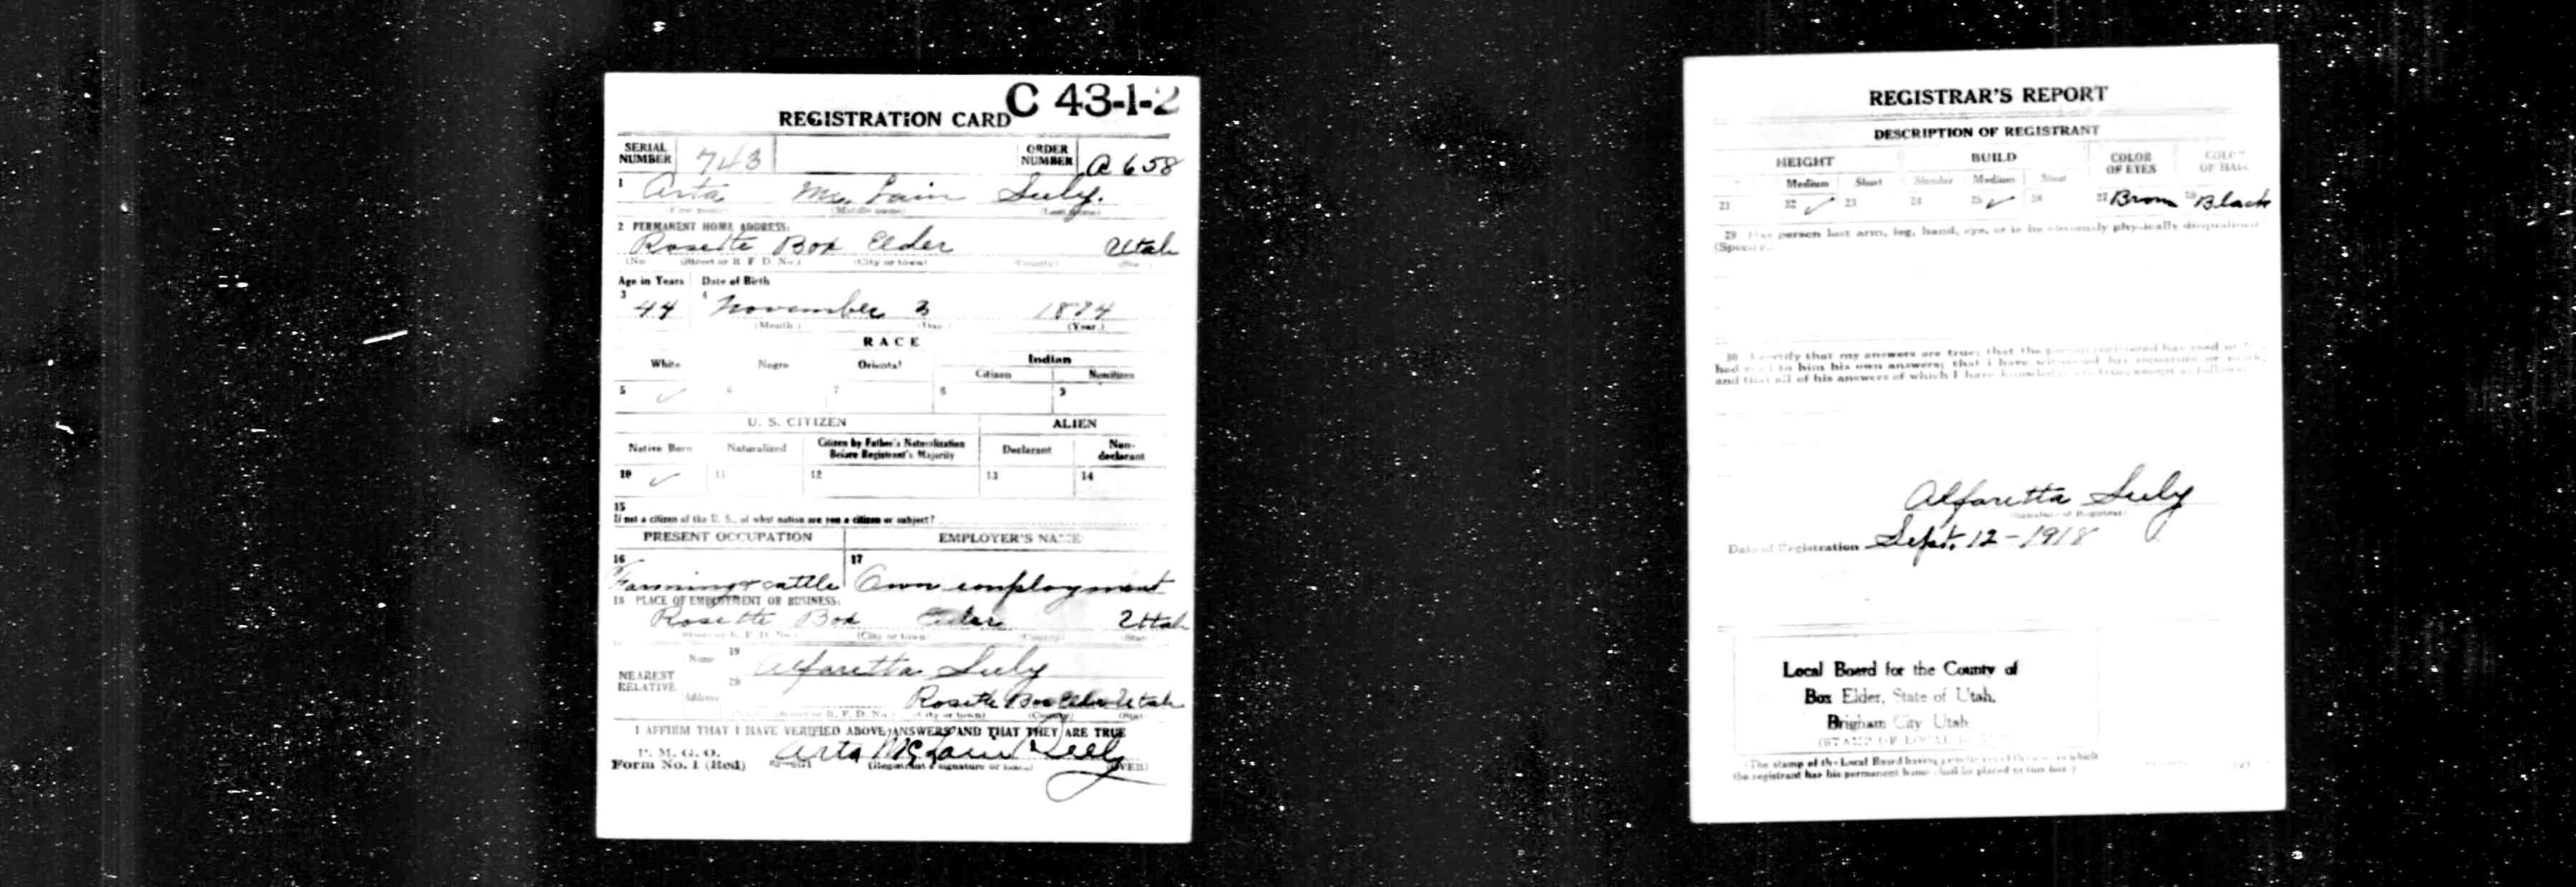 REGISTRATION CARD C 43-1-2
SERIAL NUMBER 743 ORDER NUMBER A 658
1 Arta Mc Lain Seely.
(First name) (Middle name) (Last name)
2 PERMANENT HOME ADDRESS:
Rosette Box Elder Utah
(No. (Street or R. F. D. No.) (City or town) (County) (State)
Age in Years Date of Birth
3 44 4 November 3 1874
(Month.) (Day.) (Year.)
RACE
White Negro Oriental Indian
Citizen Noncitizen
5 ✓ 6 7 8 9
U. S. CITIZEN ALIEN
Native Born Naturalized Citizen by Father's Naturalization Before Registrant's Majority Declarant Non-declarant
10 ✓ 11 12 13 14
15
If not a citizen of the U. S., of what nation are you a citizen or subject?
PRESENT OCCUPATION EMPLOYER'S NAME
16 Farming & cattle 17 Own employment
18 PLACE OF EMPLOYMENT OR BUSINESS:
Rosette Box Elder Utah
(Street or R. F. D. No.) (City or town) (County) (State)
NEAREST RELATIVE Name 19 Alfaretta Seely
Address 20 Rosette Box Elder Utah
(Street or R. F. D. No.) (City or town) (County) (State)
I AFFIRM THAT I HAVE VERIFIED ABOVE ANSWERS AND THAT THEY ARE TRUE
P. M. G. O.
Form No. 1 (Red) Arta McLain Seely
(Registrant's signature or mark) (OVER)
REGISTRAR'S REPORT
DESCRIPTION OF REGISTRANT
HEIGHT BUILD COLOR OF EYES COLOR OF HAIR
Medium Short Slender Medium Stout
21 22 ✓ 23 24 25 ✓ 26 27 Brown 28 Black
29 Has person lost arm, leg, hand, eye, or is he obviously physically disqualified?
(Specify.)
30 I certify that my answers are true; that the person registered has read or has
had read to him his own answers; that I have witnessed his signature or mark,
and that all of his answers of which I have knowledge are true, except as follows:
Alfaretta Seely
(Signature of Registrar)
Date of Registration Sept. 12 - 1918
Local Board for the County of
Box Elder, State of Utah,
Brigham City Utah
(STAMP OF LOCAL BOARD)
(The stamp of the Local Board having jurisdiction of the area in which
the registrant has his permanent home shall be placed in this box.)